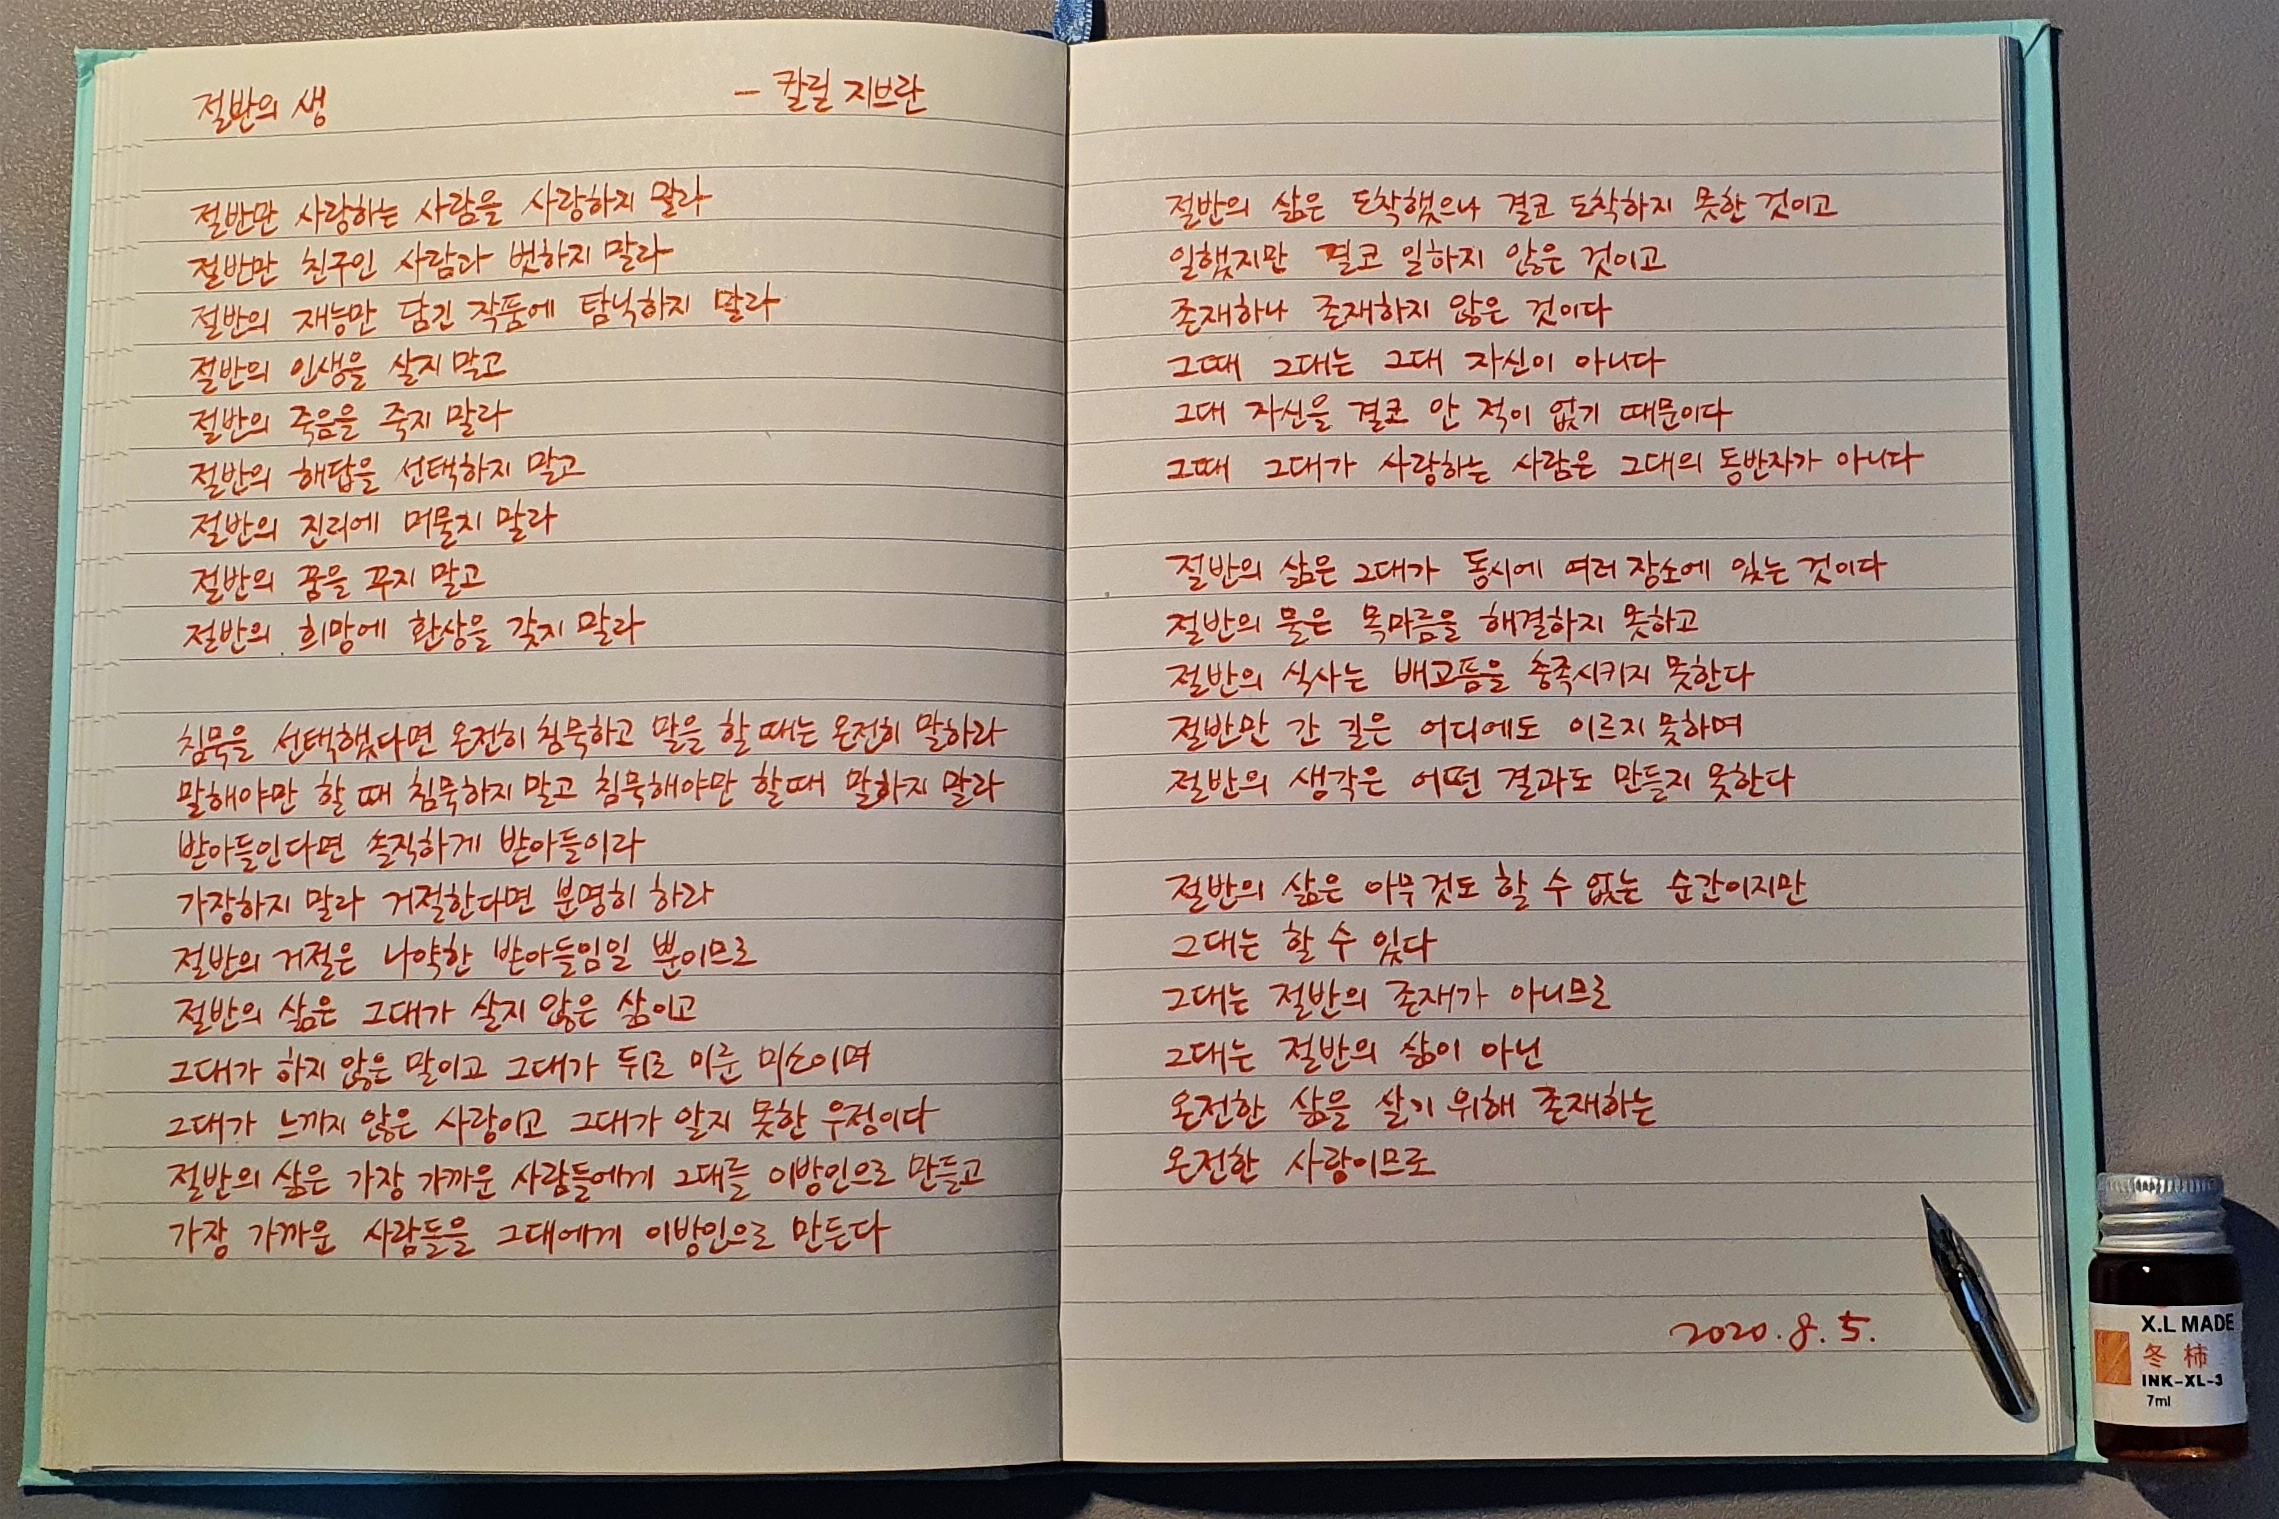 절반의 생 - 칼릴 지브란
절반만 사랑하는 사람을 사랑하지 말라
절반만 친구인 사람과 벗하지 말라
절반의 재능만 담긴 작품에 탐닉하지 말라
절반의 인생을 살지 말고
절반의 죽음을 죽지 말라
절반의 해답을 선택하지 말고
절반의 진리에 머물지 말라
절반의 꿈을 꾸지 말고
절반의 희망에 환상을 갖지 말라
침묵을 선택했다면 온전히 침묵하고 말을 할 때는 온전히 말하라
말해야만 할 때 침묵하지 말고 침묵해야만 할 때 말하지 말라
받아들인다면 솔직하게 받아들이라
가장하지 말라 거절한다면 분명히 하라
절반의 거절은 나약한 받아들임일 뿐이므로
절반의 삶은 그대가 살지 않은 삶이고
그대가 하지 않은 말이고 그대가 뒤로 미룬 미소이며
그대가 느끼지 않은 사랑이고 그대가 알지 못한 우정이다
절반의 삶은 가장 가까운 사람들에게 그대를 이방인으로 만들고
가장 가까운 사람들을 그대에게 이방인으로 만든다
절반의 삶은 도착했으나 결코 도착하지 못한 것이고
일했지만 결코 일하지 않은 것이고
존재하나 존재하지 않은 것이다
그때 그대는 그대 자신이 아니다
그대 자신을 결코 안 적이 없기 때문이다
그때 그대가 사랑하는 사람은 그대의 동반자가 아니다
절반의 삶은 그대가 동시에 여러 장소에 있는 것이다
절반의 물은 목마름을 해결하지 못하고
절반의 식사는 배고픔을 충족시키지 못한다
절반만 간 길은 어디에도 이르지 못하며
절반의 생각은 어떤 결과도 만들지 못한다
절반의 삶은 아무것도 할 수 없는 순간이지만
그대는 할 수 있다
그대는 절반의 존재가 아니므로
그대는 절반의 삶이 아닌
온전한 삶을 살기 위해 존재하는
온전한 사람이므로
2020. 8. 5.
X.L MADE
冬 柿
INK-XL-3
7ml